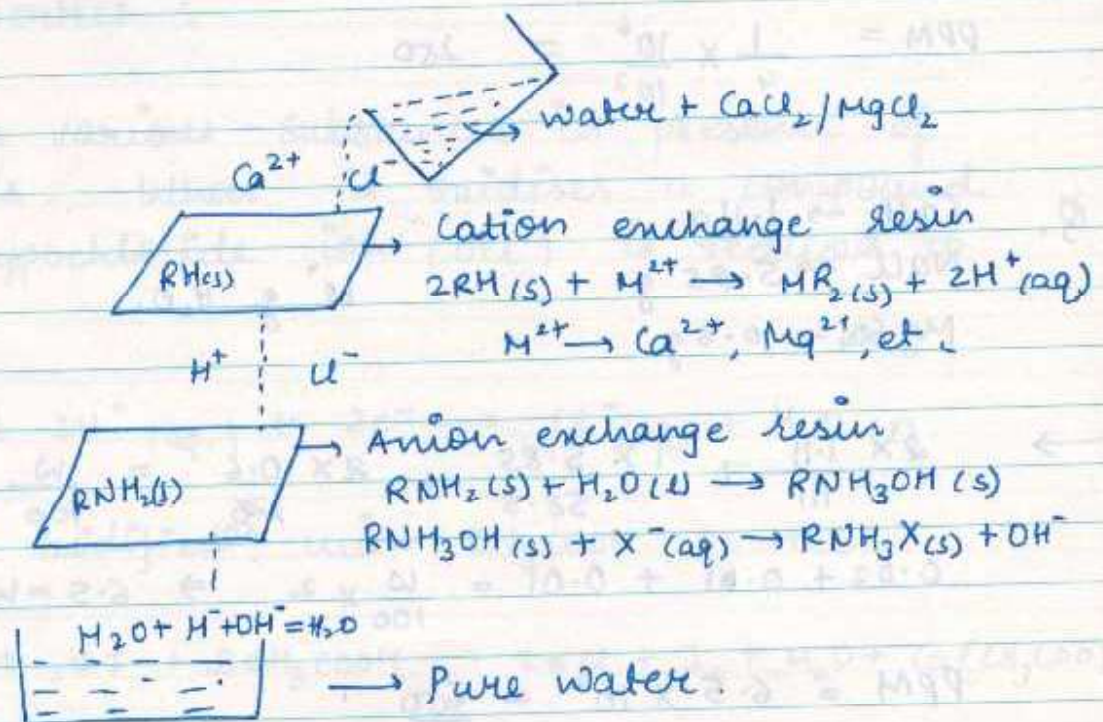 water + CaCl₂/MgCl₂
Ca²⁺ Cl⁻
Cation exchange resin
RH(s)
2RH(s) + M²⁺ → MR₂(s) + 2H⁺(aq)
M²⁺ → Ca²⁺, Mg²⁺, et.
H⁺ Cl⁻
Anion exchange resin
RNH₂(s)
RNH₂(s) + H₂O(l) → RNH₃OH(s)
RNH₃OH(s) + X⁻(aq) → RNH₃X(s) + OH⁻
H₂O + H⁻ + OH⁻ = H₂O
→ Pure water.